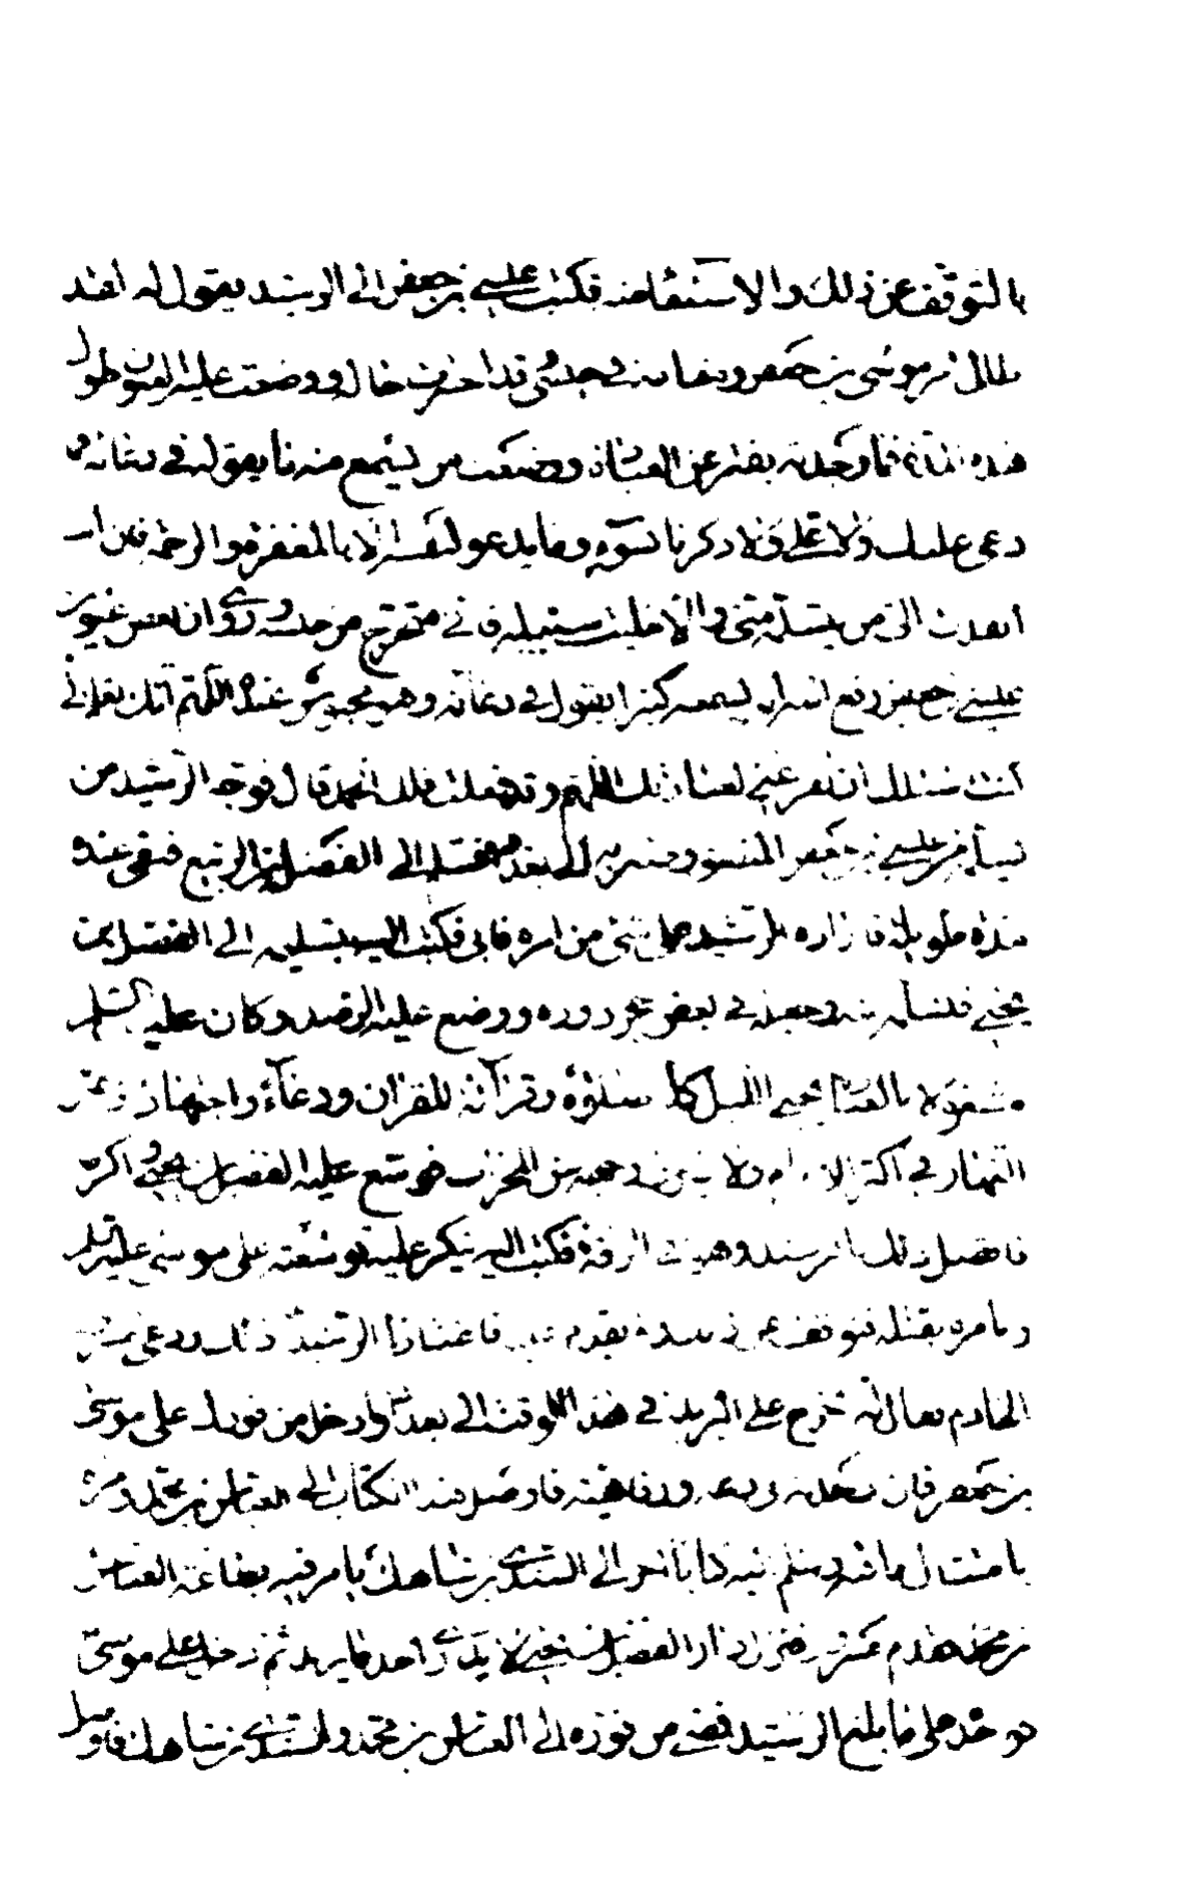 بالتوقف عن ذلك والاستعفاء منه فكتب عيسى بن جعفر الى الرشيد يقول له لقد
طال امر موسى بن جعفر ومقامه في حبسي وقد اختبرت حاله ووضعت عليه العيون طول
هذه المدة فما وجدته يفتر عن العبادة ووضعت من يسمع منه ما يقوله في دعائه فما
دعى عليك ولا علي ولا ذكرنا بسوء وما يدعو لنفسه الا بالمغفرة والرحمة فان انت
انفذت الي من يتسلمه مني والا خليت سبيله فاني متحرج من حبسه وروي ان بعض عيون
عيسى بن جعفر رفع اليه انه يسمعه كثيرا يقول في دعائه وهو محبوس عنده اللهم انك تعلم اني
كنت اسئلك ان تفرغني لعبادتك اللهم وقد فعلت فلك الحمد قال فوجه الرشيد من
تسلمه من عيسى بن جعفر المنصور وصير به الى بغداد فسلم الى الفضل بن الربيع فبقى عنده
مدة طويلة فاراده الرشيد على شيء من امره فابى فكتب اليه بتسليمه الى الفضل بن
يحيى فتسلمه منه وجعله في بعض حجر دوره ووضع عليه الرصد وكان عليه السلام
مشغولا بالعبادة يحيي الليل كله صلوة وقرآنة للقرآن ودعاء واجتهادا ويصوم
النهار في اكثر الايام ولا يصرف وجهه من المحراب فوسع عليه الفضل بن يحيى واكرمه
فاتصل ذلك بالرشيد وهو في الرقة فكتب اليه ينكر عليه توسعته على موسى عليه السلم
ويامره بقتله فتوقف عن ذلك ولم يقدم عليه فاغتاظ الرشيد لذلك ودعى مسرور
الخادم فقال له اخرج على البريد في هذا الوقت الى بغداد وادخل من فورك على موسى
بن جعفر فان وجدته في دعة ورفاهية فاوصل هذا الكتاب الى العباس بن محمد ومره
بامتثال ما فيه وسلم اليه كتابا آخر الى السندي بن شاهك يامره فيه بطاعة العباس
بن محمد فقدم مسرور فنزل دار الفضل بن يحيى لا يدري احد ما يريد ثم دخل على موسى
فوجده على ما بلغ الرشيد فمضى من فوره الى العباس بن محمد والسندي بن شاهك فاوصل